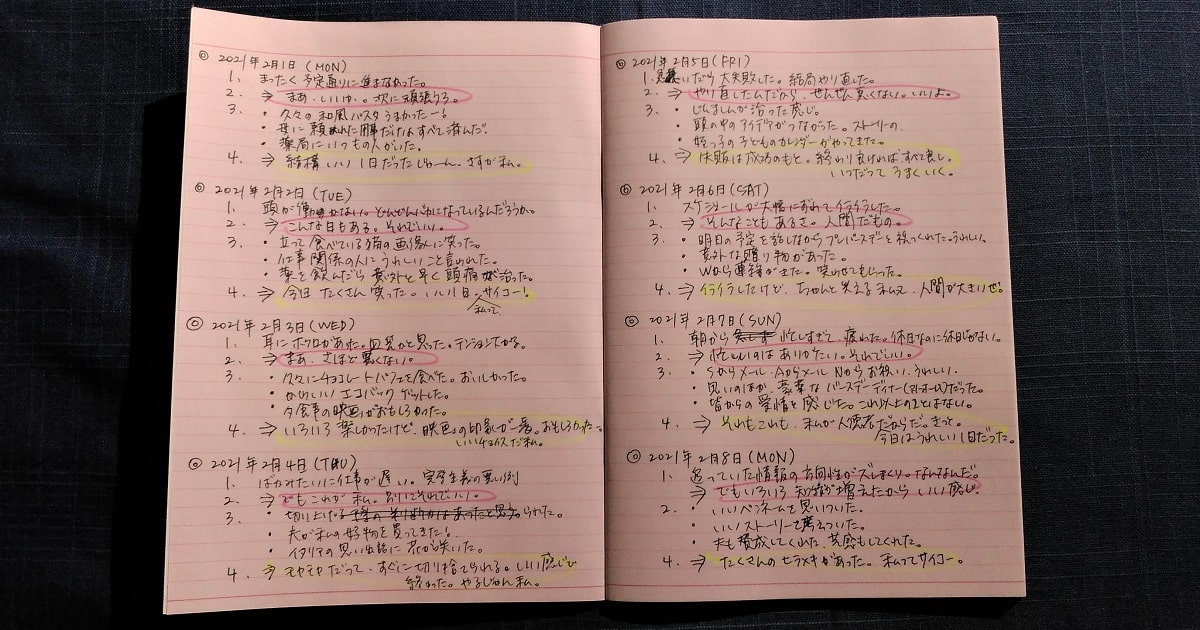 ◎ 2021年2月1日(MON)
1. まったく予定通りに進まなかった。
2. ⇒ まあ、いいか。次に頑張ろう。
3. ・久々の和風パスタうまかったー!
・母に頼まれた用事だけはすべて済んだ!
・薬局にいつもの人がいた。
4. ⇒ 結構いい1日だったじゃーん、さすが私。
◎ 2021年2月2日(TUE)
1. 頭が働かない。どんどんバカになっているんだろうか。
2. ⇒ こんな日もある。それでいい。
3. ・立って食べている猫の画像に笑った。
・仕事関係の人にうれしいこと言われた。
・薬を飲んだら意外と早く頭痛が治った。
4. ⇒ 今日たくさん笑った。いい1日。サイコー!
私って
◎ 2021年2月3日(WED)
1. 耳にホクロがあった。皿見かと思った。テンション下がる。
2. ⇒ まあ、さほど悪くない。
3. ・久々にチョコレートパフェを食べた。おいしかった。
・かわいいエコバックゲットした。
・夕食事の映画がおもしろかった。
4. ⇒ いろいろ楽しかったけど、映画の印象が一番。おもしろかったー。
いいチョイスだ私。
◎ 2021年2月4日(THU)
1. ばかみたいに仕事が遅い。完璧主義の悪い例
2. ⇒ でもこれが私。別にそれでいい。
3. ・切り上げる られた。
・夫が私の好物を買ってきた!
・イタリアの思い出話に花が咲いた。
4. ⇒ モヤモヤだって、すぐに切り捨てられる。いい感じで
終わった。やるじゃん私。
◎ 2021年2月5日(FRI)
1. 急いだら大失敗した。結局やり直した。
2. ⇒ やり直したんだから、ぜんぜん悪くない。いいよ。
3. ・じんましんが治った感じ。
・頭の中のアイデアがつながった。ストーリーの。
・姪っ子の子どものカレンダーがやってきた。
4. ⇒ 失敗は成功のもと。終わり良ければすべて良し。
いつだってうまくいく。
◎ 2021年2月6日(SAT)
1. スケジュールが大幅におれてイライラした。
2. ⇒ そんなこともあるさ。人間だもの。
3. ・明日の予定を話しながらプレバースデーを祝ってくれた。うれしい。
・意外な贈り物があった。
・Wから連絡がきた。笑わせてもらった。
4. ⇒ イライラしたけど、ちゃんと笑える私って、人間が大きいぜ!
◎ 2021年2月7日(SUN)
1. 朝から 忙しすぎて、疲れた。休日なのに休日じゃない。
2. ⇒ 忙しいのはありがたい。それでいい。
3. ・SからメールAからメールNからお祝い、うれしい。
・思いのほか、豪華なバースデーディナー だった。
・皆からの愛情を感じた。これ以上のことはない。
4. ⇒ それもこれも、私が人徳者だからだ。きっと。
今日はうれしい1日だった。
◎ 2021年2月8日(MON)
1. 追っていた情報の方向性がズレまくり。なんなんだ。
⇒ でもいろいろ知識が増えたからいい感じ。
2. ・いいペンネームを思いついた。
・いいストーリーを考えついた。
・夫も賛成してくれた、共感もしてくれた。
4. ⇒ たくさんのヒラメキがあった。私ってサイコー。